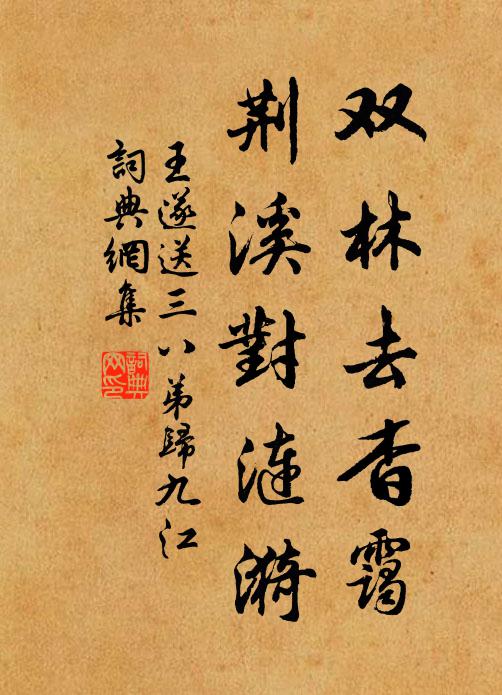 双林去杳靄
荆溪對漣漪
王遂送三八弟歸九江
詞典網集
詞典网印